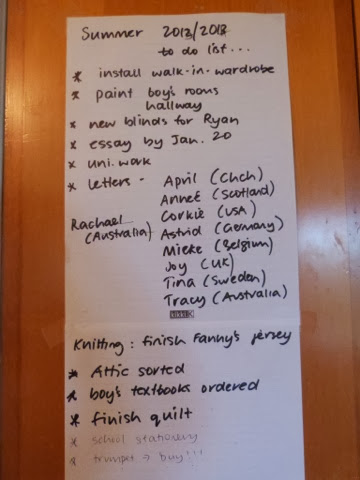 Summer 2012/2013
to do list...
* install walk-in-wardrobe
* paint boy's rooms
hallway
* new blinds for Ryan
* essay by Jan. 20
* uni. work
* letters - April (Chch)
Anneé (Scotland)
Corkie (USA)
Rachael
(Australia)
Astrid (Germany)
Mieke (Belgium)
Joy (UK)
Tina (Sweden)
Tracy (Australia)
Knitting: finish Fanny's jersey
* Attic sorted
* boy's textbooks ordered
* finish quilt
* school stationery
* trumpet → buy!!!